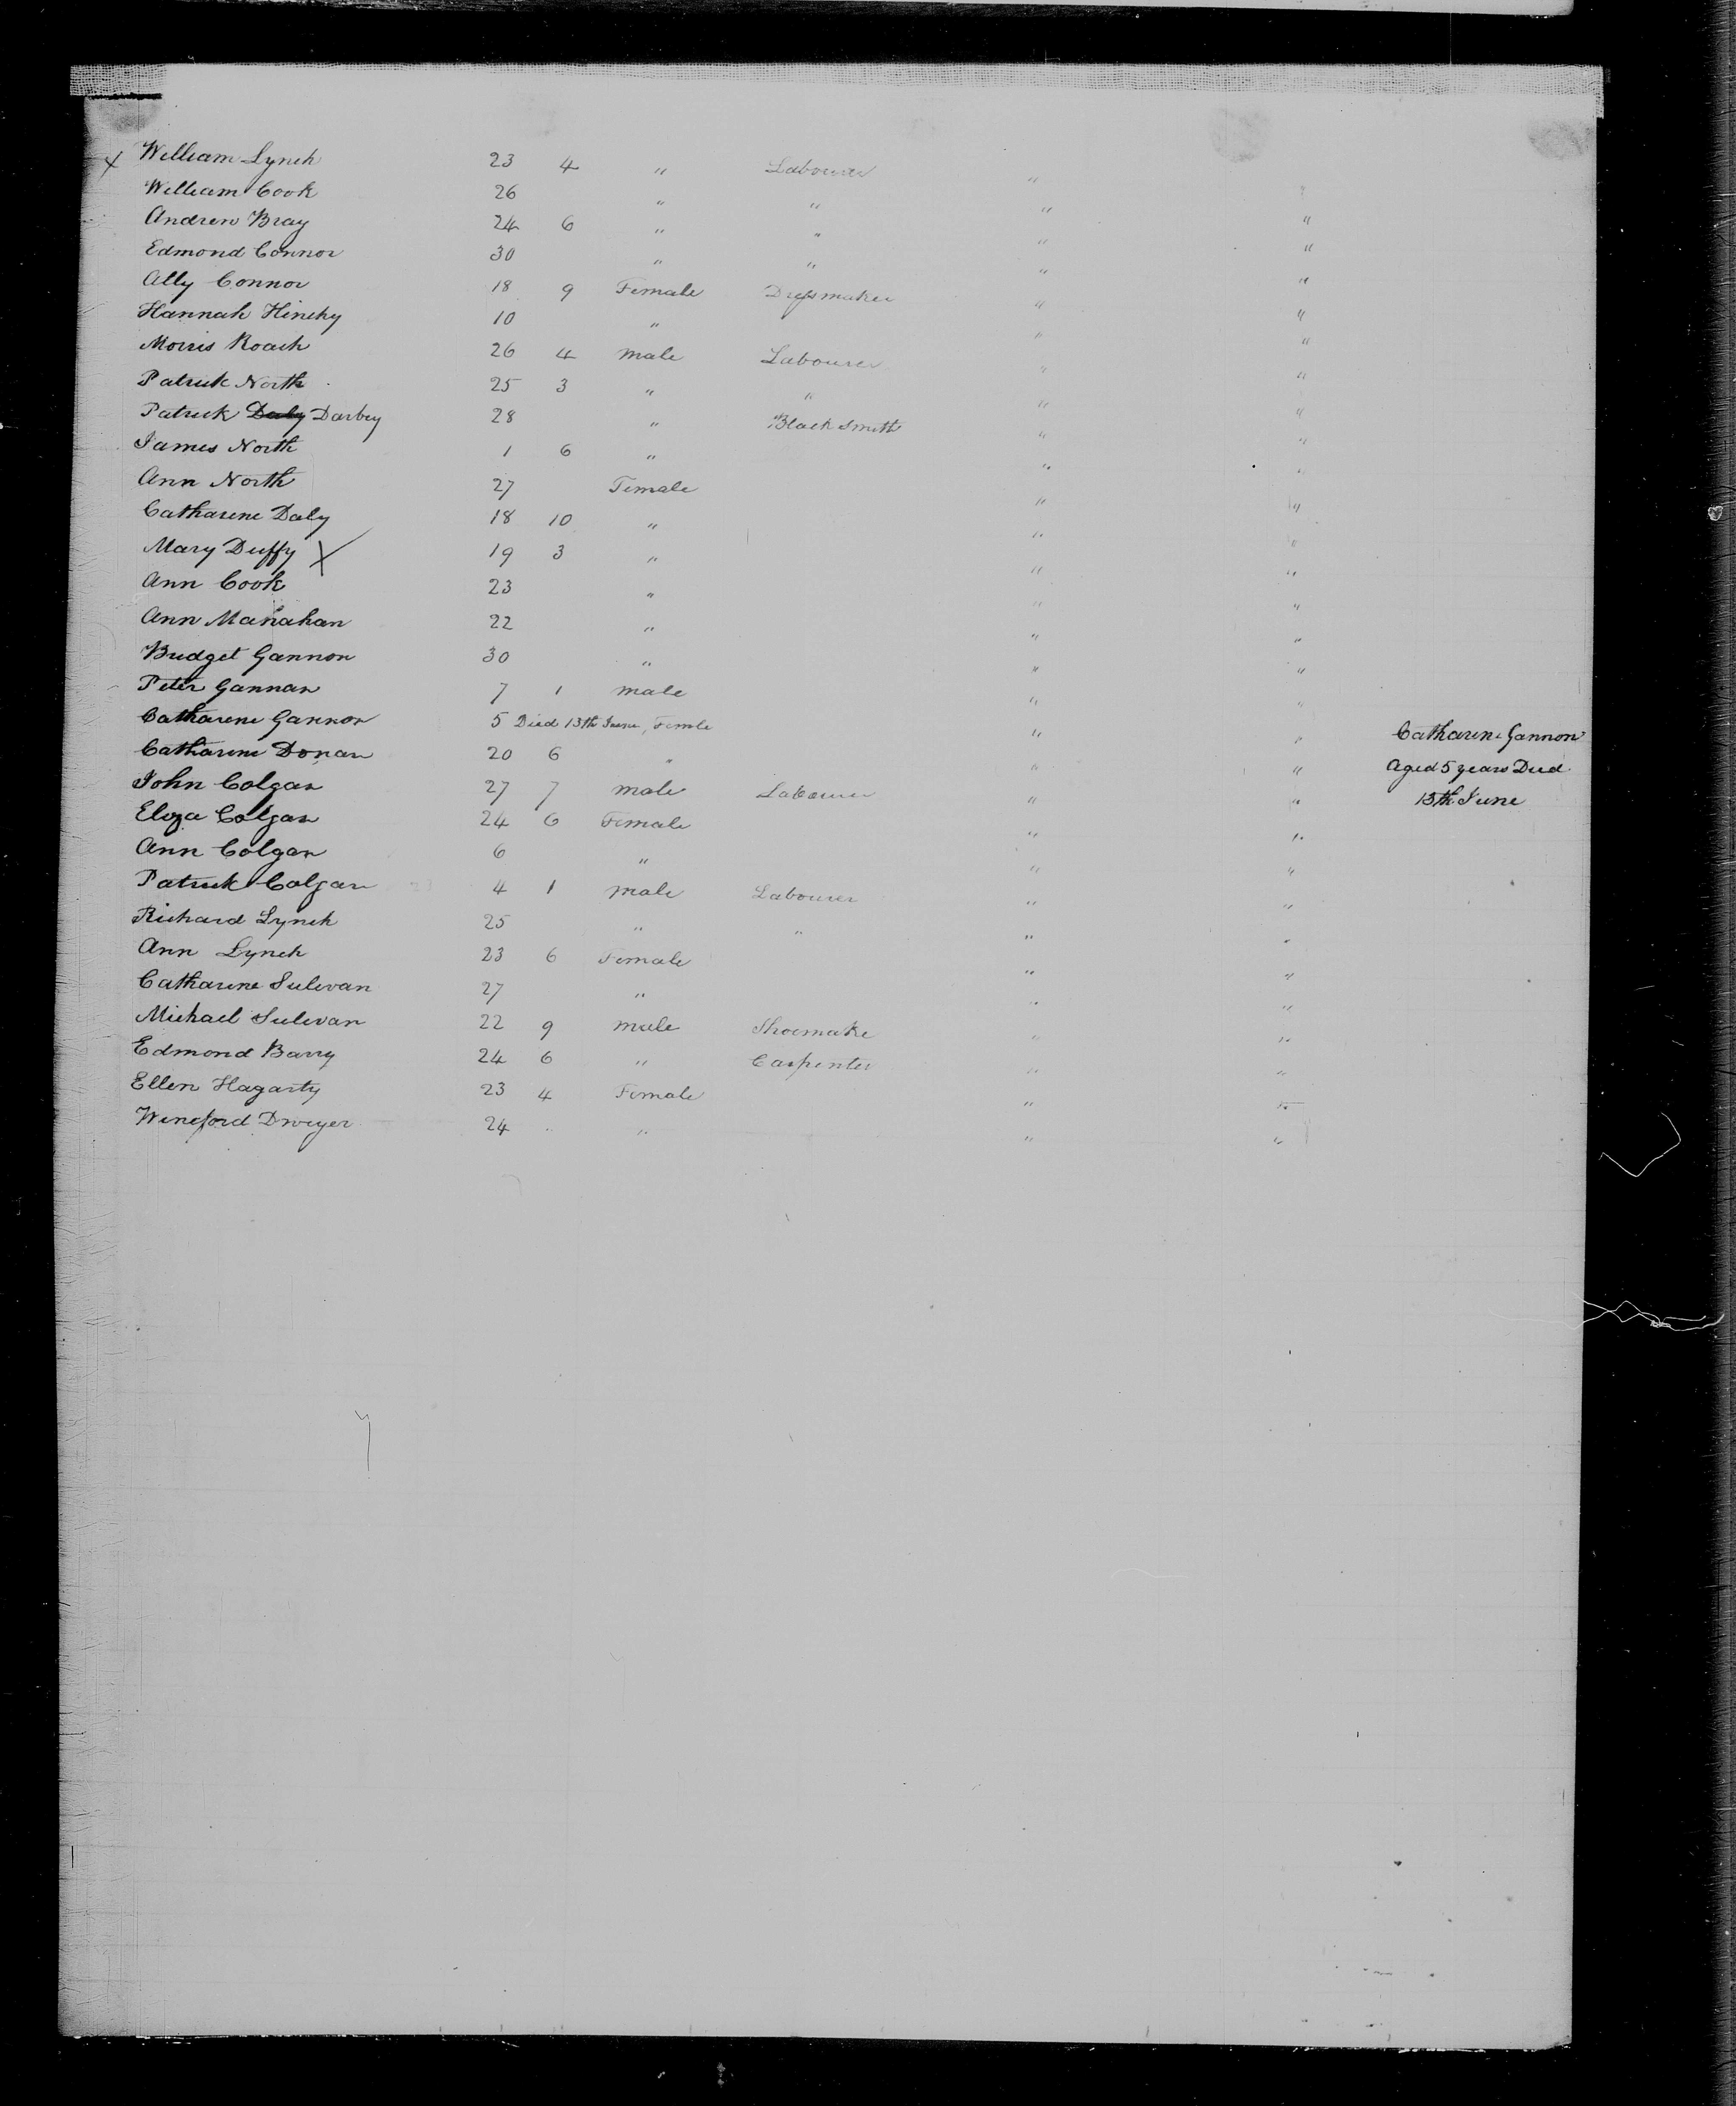 x William Lynch 23 4 " Labourer "
William Cook 26 " " " "
Andrew Bray 24 6 " " " "
Edmond Connor 30 " " " "
Ally Connor 18 9 Female Dressmaker " "
Hannah Hinchy 10 " " "
Morris Roach 26 4 male Labourer " "
Patrick North 25 3 " " " "
Patrick Daly Darbey 28 " Black Smith " "
James North 1 6 " " "
Ann North 27 Female " "
Catharine Daly 18 10 " " "
Mary Duffy X 19 3 " " "
Ann Cook 23 " " "
Ann Manahan 22 " " "
Bridget Gannon 30 " " "
Peter Gannan 7 1 male " "
Catharene Gannon 5 Died 13th June, Female " " Catharine Gannon
Catharine Donan 20 6 " " " Aged 5 years Died
John Colgan 27 7 male Labourer " " 13th June
Eliza Colgan 24 6 Female " "
Ann Colgan 6 " " "
Patrick Colgan 4 1 male Labourer " "
Richard Lynch 25 " " " "
Ann Lynch 23 6 Female " "
Catharine Sulivan 27 " " "
Michael Sulivan 22 9 male Shoemake " "
Edmond Barry 24 6 " Carpenter " "
Ellen Hagarty 23 4 Female " "
Wineford Dwyer 24 " " "